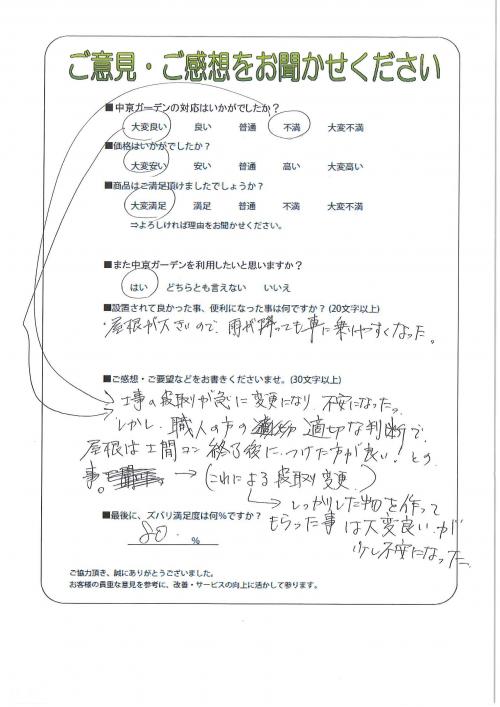 ご意見・ご感想をお聞かせください
■中京ガーデンの対応はいかがでしたか?
大変良い 良い 普通 不満 大変不満
■価格はいかがでしたか?
大変安い 安い 普通 高い 大変高い
■商品はご満足頂けましたでしょうか?
大変満足 満足 普通 不満 大変不満
⇒よろしければ理由をお聞かせください。
■また中京ガーデンを利用したいと思いますか?
はい どちらとも言えない いいえ
■設置されて良かった事、便利になった事は何ですか?(20文字以上)
・屋根が大きいので、雨が降っても車に乗りやすくなった。
■ご感想・ご要望などをお書きくださいませ。(30文字以上)
工事の段取りが急に変更になり 不安になった。
しかし 職人の方の 適切な判断で
屋根は土間コン終了後につけた方が良い!との
事。→(これによる段取り変更。)
→しっかりした物を作って
もらった事は大変良い が
少し不安になった。
■最後に、ズバリ満足度は何%ですか?
80. %
ご協力頂き、誠にありがとうございました。
お客様の貴重な意見を参考に、改善・サービスの向上に活かして参ります。